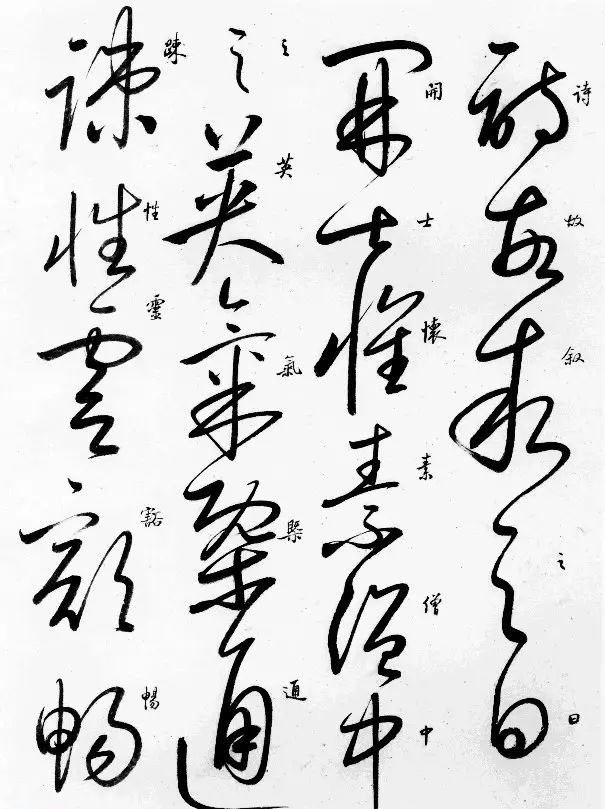 诗故叙之曰
開士懷素僧中
之英氣槩通
踈性靈豁暢